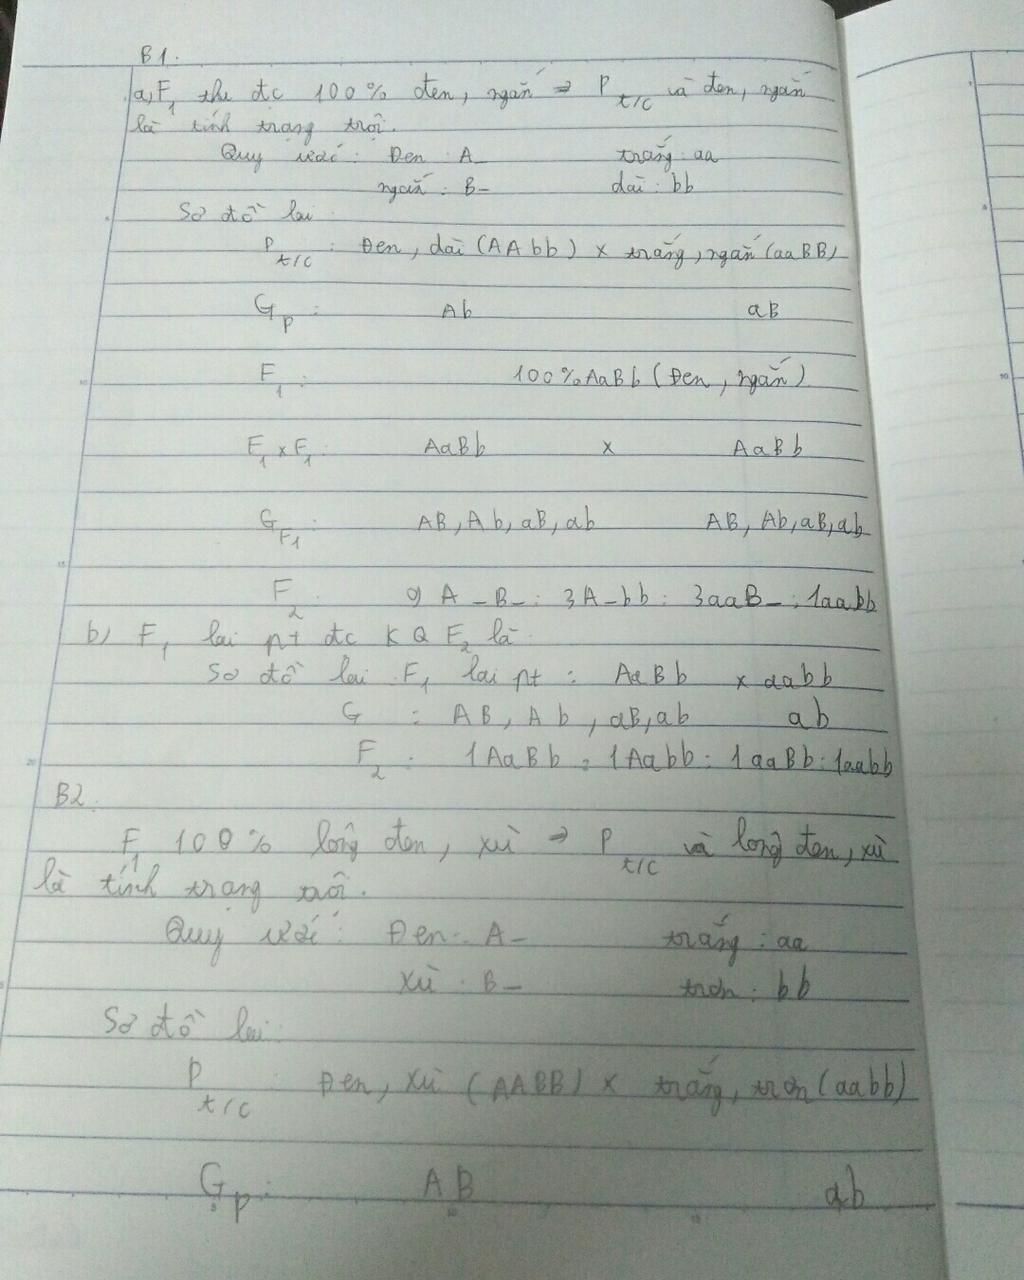 B1.
a, F1 thu đc 100% đen, ngắn => P t/c và đen, ngắn
là tính trạng trội.
Quy ước: Đen: A_ trắng: aa
ngắn: B- dài: bb
Sơ đồ lai:
P t/c: Đen, dài (AAbb) x trắng, ngắn (aaBB)
Gp: Ab aB
F1: 100% AaBb (Đen, ngắn)
F1 x F1: AaBb x AaBb
GF1: AB, Ab, aB, ab AB, Ab, aB, ab
F2 9 A-B-: 3A-bb: 3aaB-: 1aabb
b) F1 lai pt đc KQ F2 là
Sơ đồ lai F1 lai pt: AaBb x aabb
G: AB, Ab, aB, ab ab
F2: 1AaBb: 1Aabb: 1aaBb: 1aabb
B2.
F1 100% lông đen, xù => P t/c và lông đen, xù
là tính trạng trội.
Quy ước: Đen: A- trắng: aa
xù: B- trơn: bb
Sơ đồ lai:
P t/c Đen, xù (AABB) x trắng, trơn (aabb)
Gp: AB ab